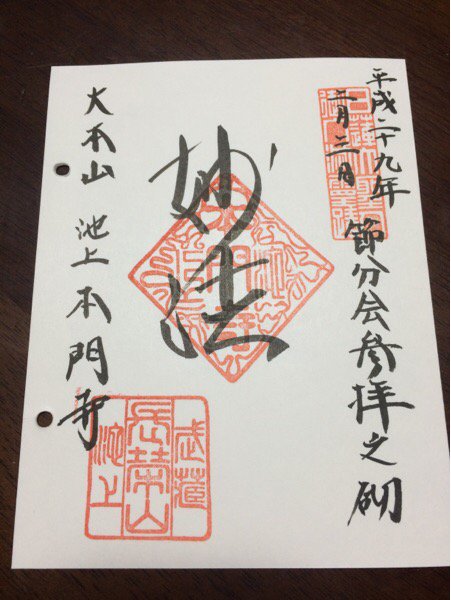 平成二十九年
二月三日
節分会参拝之砌
妙法
大本山 池上 本門寺
武蔵
長荣山
池上